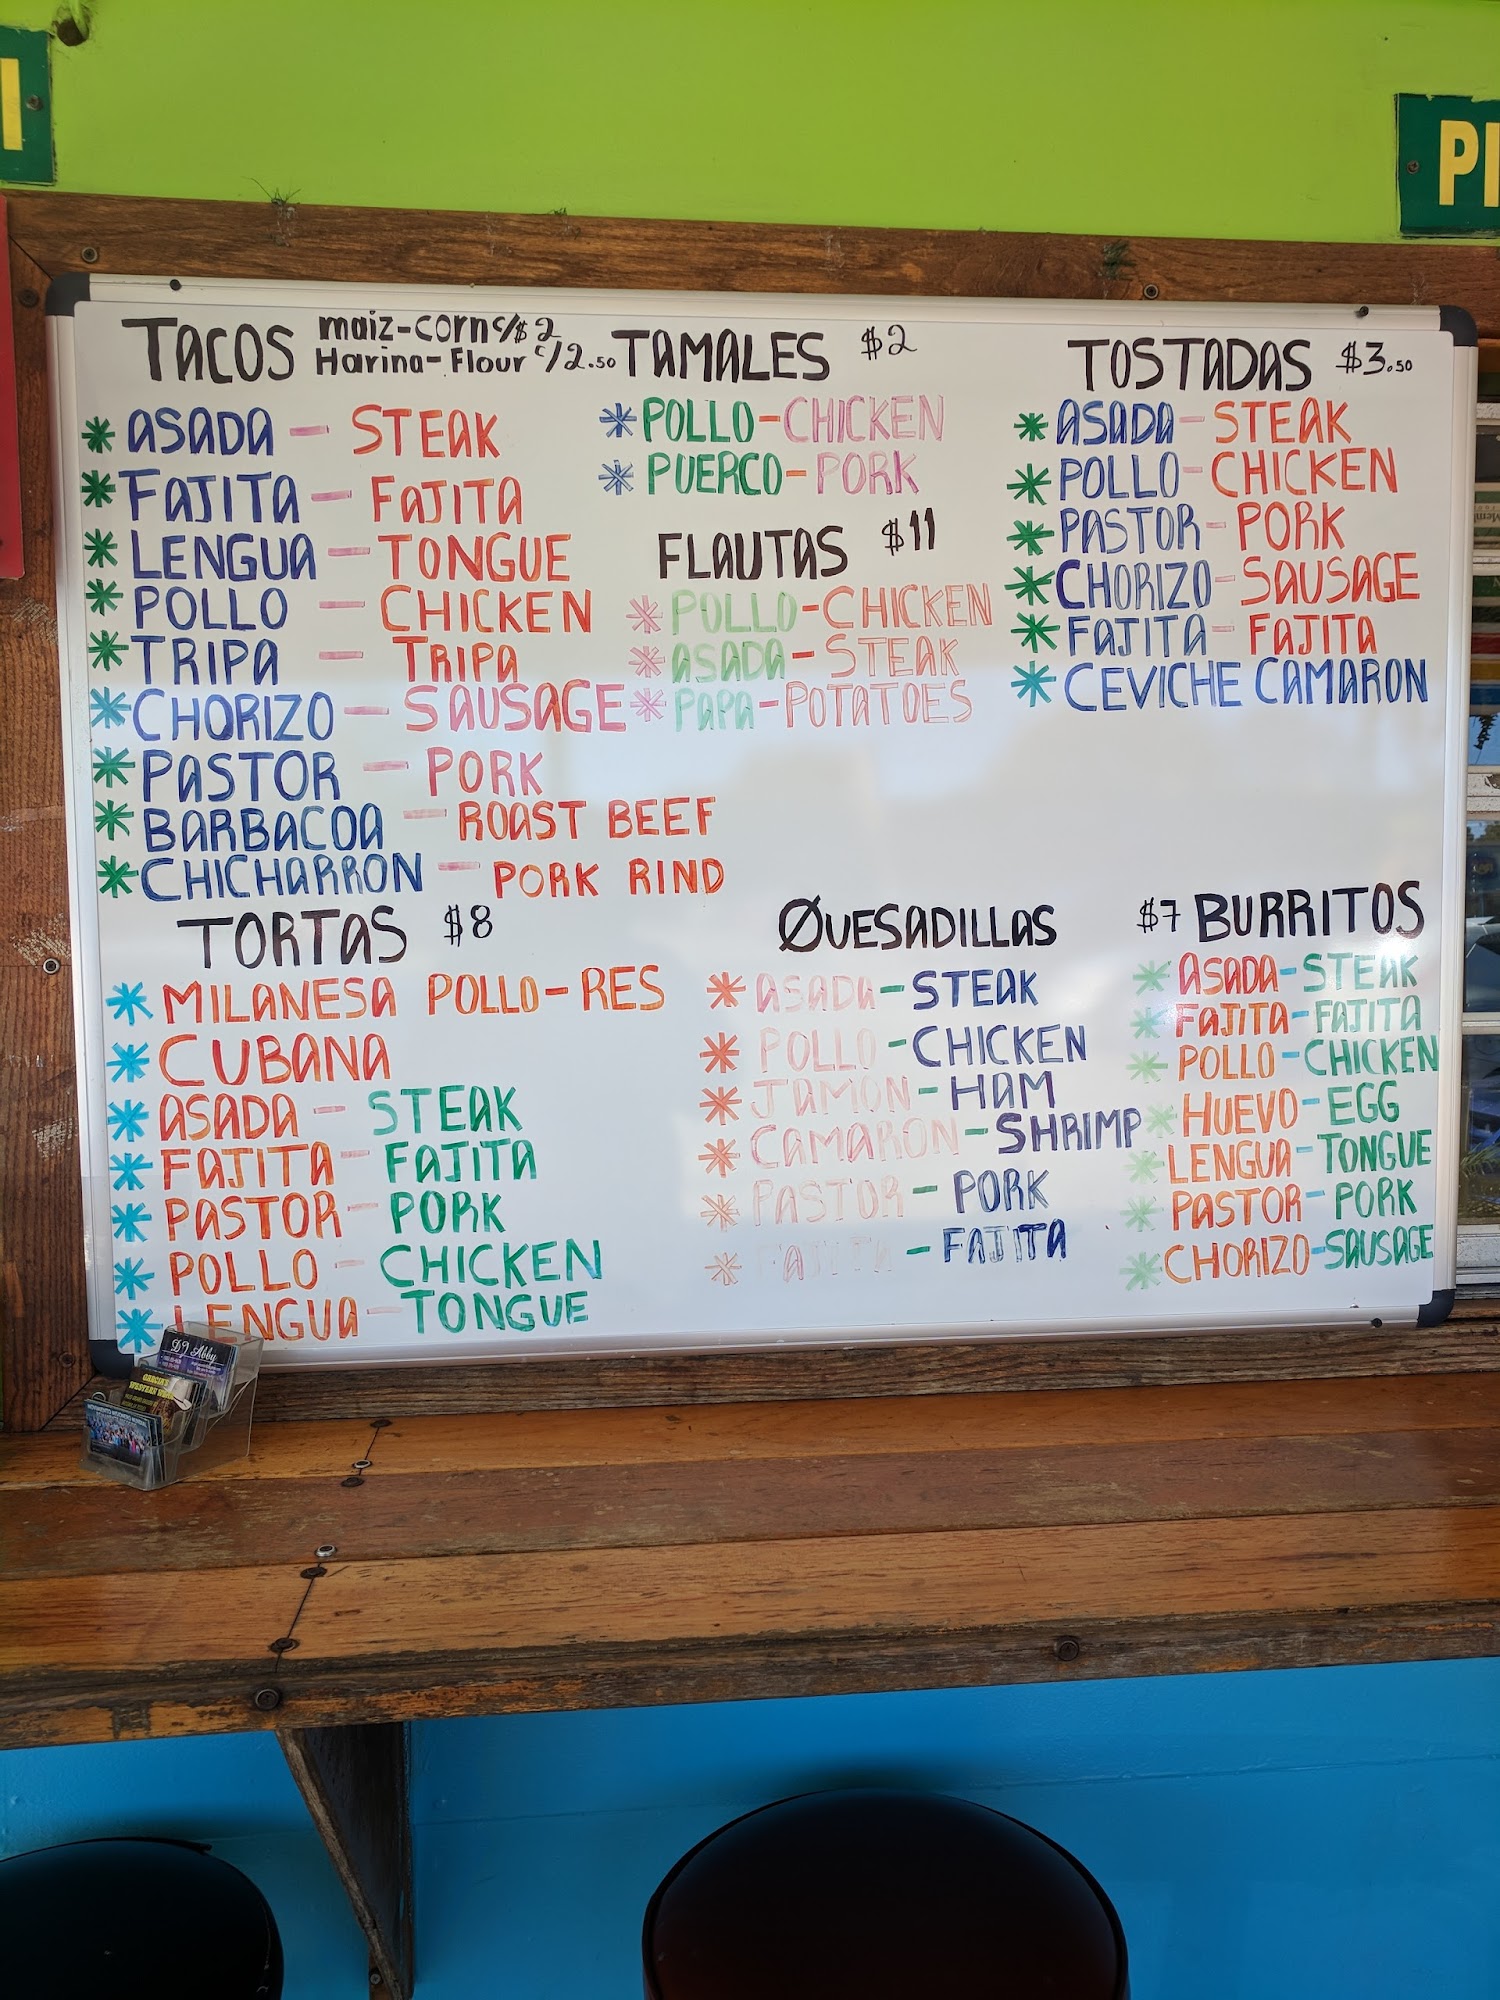 I
PI
TACOS maiz-corn c/$2
Harina-Flour c/2.50
* ASADA - STEAK
* FAJITA - FAJITA
* LENGUA - TONGUE
* POLLO - CHICKEN
* TRIPA - TRIPA
* CHORIZO - SAUSAGE
* PASTOR - PORK
* BARBACOA - ROAST BEEF
* CHICHARRON - PORK RIND
TAMALES $2
* POLLO-CHICKEN
* PUERCO-PORK
FLAUTAS $11
* POLLO-CHICKEN
* ASADA-STEAK
* PAPA-POTATOES
TOSTADAS $3.50
* ASADA-STEAK
* POLLO-CHICKEN
* PASTOR-PORK
* CHORIZO-SAUSAGE
* FAJITA-FAJITA
* CEVICHE CAMARON
TORTAS $8
* MILANESA POLLO-RES
* CUBANA
* ASADA - STEAK
* FAJITA - FAJITA
* PASTOR - PORK
* POLLO - CHICKEN
* LENGUA - TONGUE
QUESADILLAS $7
* ASADA-STEAK
* POLLO-CHICKEN
* JAMON-HAM
* CAMARON-SHRIMP
* PASTOR-PORK
* FAJITA-FAJITA
BURRITOS
* ASADA-STEAK
* FAJITA-FAJITA
* POLLO-CHICKEN
* HUEVO-EGG
* LENGUA-TONGUE
* PASTOR-PORK
* CHORIZO-SAUSAGE
DJ Abby
GARCIA'S
WESTERN WEAR